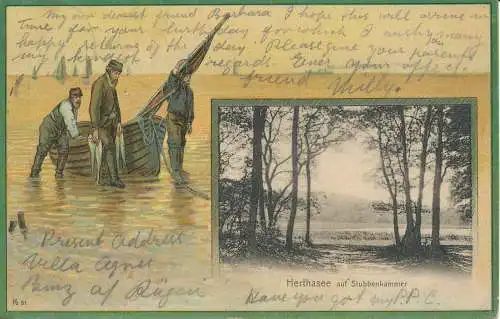 My own dearest friend Barbara I hope this will arrive in
time for your birthday for which I wish many
happy returns of the day. Please give your parents
my kindest regards. Ever your affect.
friend Milly!
Herthasee auf Stubbenkammer
Present Address
Villa Agnes
Binz a/ Rügen
Have you got my P.P.C.